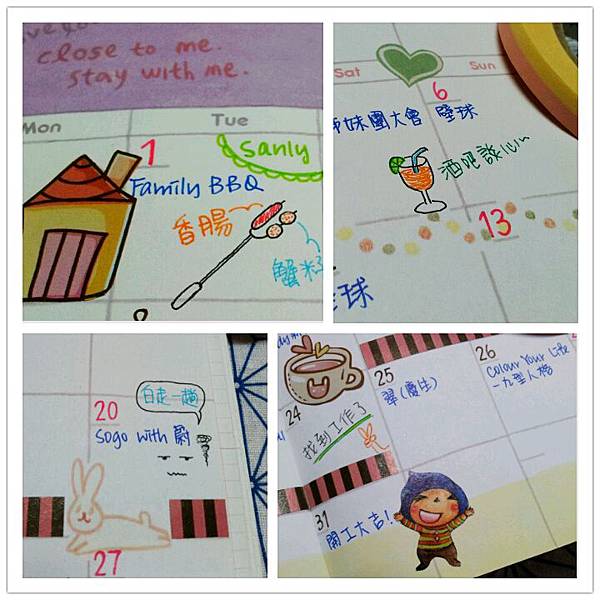 close to me.
stay with me.
Mon
Tue
1
Sanly
Family BBQ
香腸
蟹籽
Sat
Sun
6
姊妹團大會 壁球
酒吧談心
13
球
白走一趟
20
Sogo with 蔚
27
24
25
26
翠(慶生)
Colour Your Life
-九型人格
找到工作了
31
開工大吉!